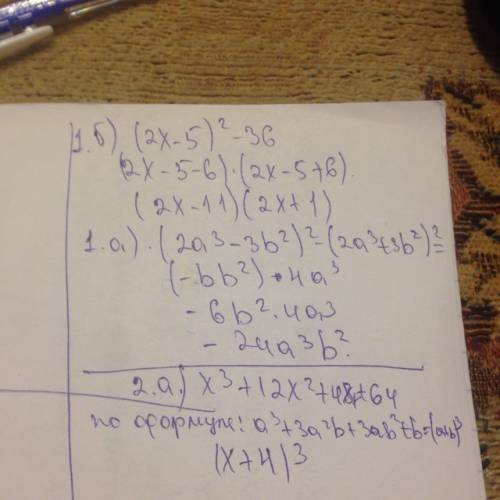 1.б) (2x-5)²-36
(2x-5-6)·(2x-5+6).
(2x-11)(2x+1)
1.а)·(2a³-3b²)²-(2a³+3b²)²=
(-6b²)·4a³
-6b²·4a³
-24a³b².
2.а) x³+12x²+48x+64
по формуле: a³+3a²b+3ab²+b=(a+b)³
(x+4)³